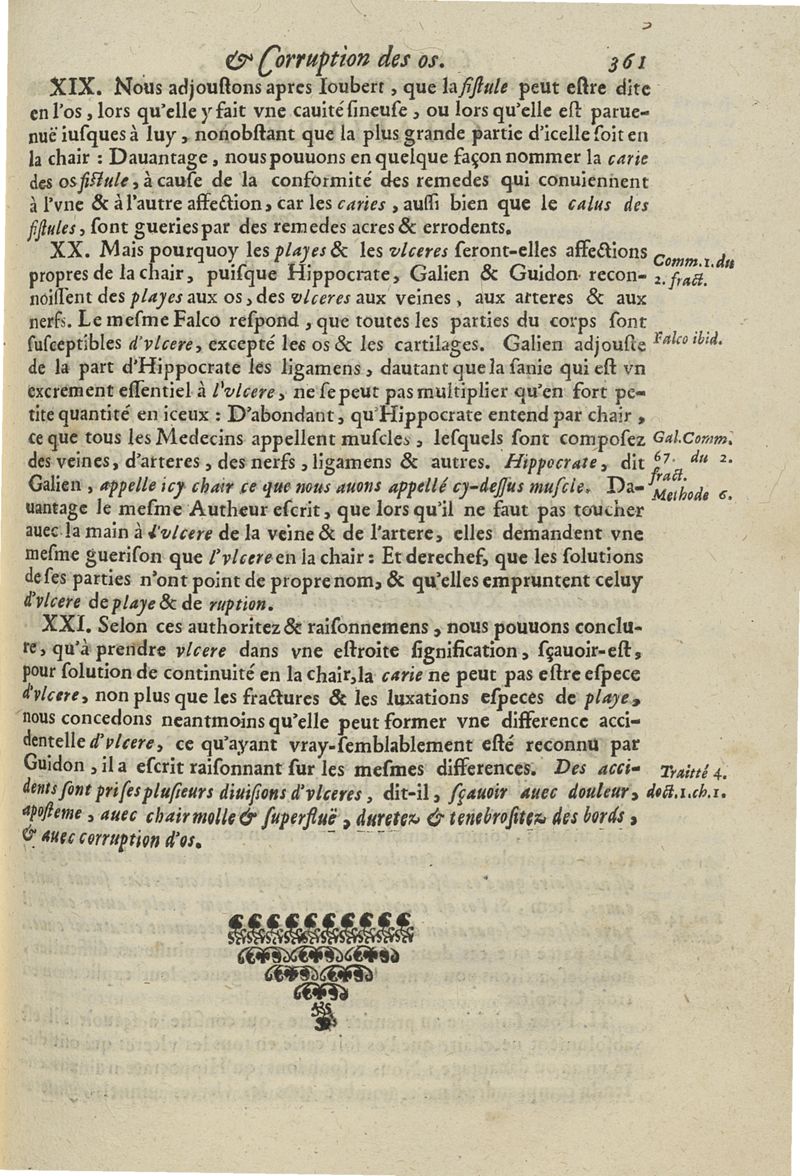 & Corruption des os. 361
XIX. Nous adjouſtons apres Ioubert, que la fiſtule peut eſtre dite
en l'os, lors qu'elle y fait vne cauité ſineuſe, ou lors qu'elle eſt parue-
nuë iuſques à luy, nonobſtant que la plus grande partie d'icelle ſoit en
la chair : Dauantage, nous pouuons en quelque façon nommer la carie
des os fiſtule, à cauſe de la conformité des remedes qui conuiennent
à l'vne & à l'autre affection, car les caries, auſſi bien que le calus des
fiſtules, ſont gueries par des remedes acres & errodents.
XX. Mais pourquoy les playes & les vlceres ſeront-elles affections
propres de la chair, puiſque Hippocrate, Galien & Guidon recon-
noiſſent des playes aux os, des vlceres aux veines, aux arteres & aux
nerfs. Le meſme Falco reſpond, que toutes les parties du corps ſont
ſuſceptibles d'vlcere, excepté les os & les cartilages. Galien adjouſte
de la part d'Hippocrate les ligamens, dautant que la ſanie qui eſt vn
excrement eſſentiel à l'vlcere, ne ſe peut pas multiplier qu'en fort pe-
tite quantité en iceux : D'abondant, qu'Hippocrate entend par chair,
ce que tous les Medecins appellent muſcles, leſquels ſont compoſez
des veines, d'arteres, des nerfs, ligamens & autres. Hippocrate, dit
Galien, appelle icy chair ce que nous auons appellé cy-deſſus muſcle. Da-
uantage le meſme Autheur eſcrit, que lors qu'il ne faut pas toucher
auec la main à l'vlcere de la veine & de l'artere, elles demandent vne
meſme gueriſon que l'vlcere en la chair : Et derechef, que les ſolutions
de ſes parties n'ont point de propre nom, & qu'elles empruntent celuy
d'vlcere de playe & de ruption.
XXI. Selon ces authoritez & raiſonnemens, nous pouuons conclu-
re, qu'à prendre vlcere dans vne eſtroite ſignification, ſçauoir-eſt,
pour ſolution de continuité en la chair, la carie ne peut pas eſtre eſpece
d'vlcere, non plus que les fractures & les luxations eſpeces de playe,
nous concedons neantmoins qu'elle peut former vne difference acci-
dentelle d'vlcere, ce qu'ayant vray-ſemblablement eſté reconnu par
Guidon, il a eſcrit raiſonnant ſur les meſmes differences. Des acci-
dents ſont priſes pluſieurs diuiſions d'vlceres, dit-il, ſçauoir auec douleur,
apoſteme, auec chair molle & ſuperfluë, duretez & tenebroſitez des bords,
& auec corruption d'os.
Comm. 1. du
2. fract.
Falco ibid.
Gal. Comm.
67. du 2.
fract.
Methode 6.
Traitté 4.
doct. 1. ch. 1.